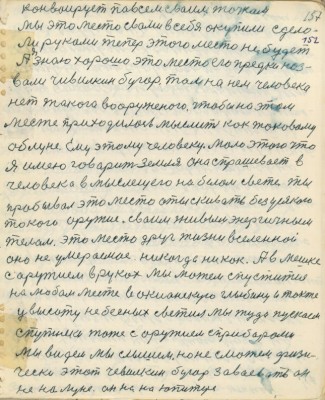 конвоирует по всем своим точкам 157
мы это место с вами в себя окупили сдела-
ли руками теперь этого место не будет 152
А знаю хорошо это место его предки наз-
вали чивилкин бугар, там на нем человека
нет такого вооруженого, чтобы на этом
месте приходилось мыслить как таковому
облуне. Ему этому человеку мало этого что
я имею говарит земля она спрашевает в
человека в мыслещего на белом свете. ты
пробывал это место отыскивать без усякого
токого оружие. своим живым энергичным
телам. это место друг жизни вселенной
оно не умераемое. никогда никак. А в
с оружием в руках мы можем спустится
на любом месте в окианскую глыбину а также
у высоту небесных светил мы туда пускаем
спутники тоже с оружием с прибарами
мы видем мы слышем, но не сможем физи-
чески этот чевилкин бугар завоевать он
не на луне. он на на юпитире